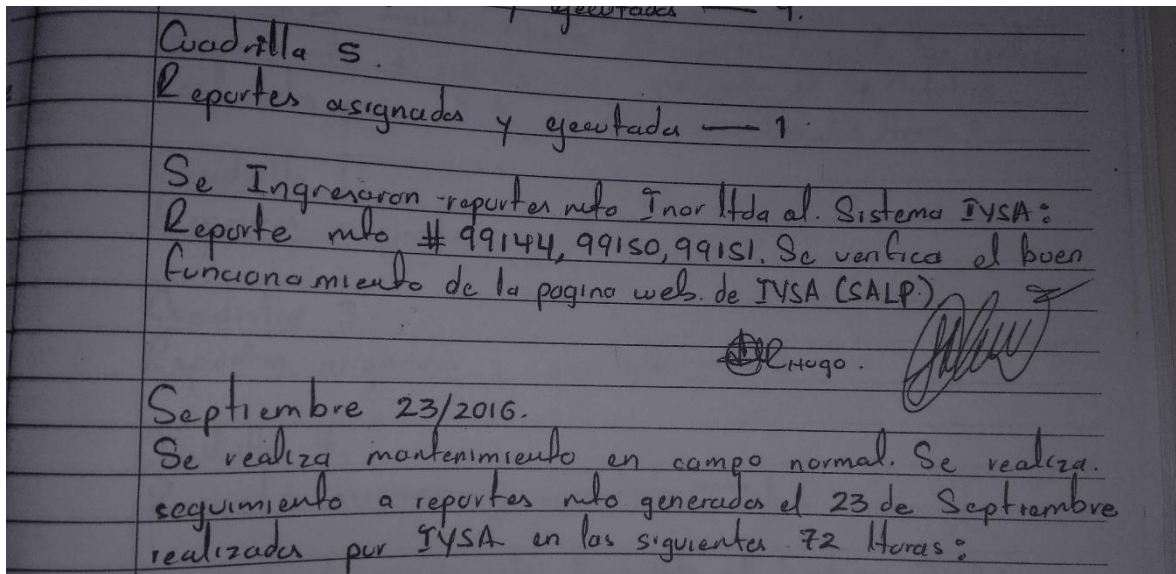 ejecutados — 4.
Cuadrilla 5.
Reportes asignados y ejecutados — 1.
Se Ingresaron reportes mto Inor ltda al. Sistema IYSA:
Reporte mto # 99144, 99150, 99151. Se verifica el buen
funcionamiento de la pagina web. de IYSA (SALP.)
Hugo.
Septiembre 23/2016.
Se realiza mantenimiento en campo normal. Se realiza.
seguimiento a reportes mto generados el 23 de Septiembre
realizados por IYSA en las siguientes 72 Horas: